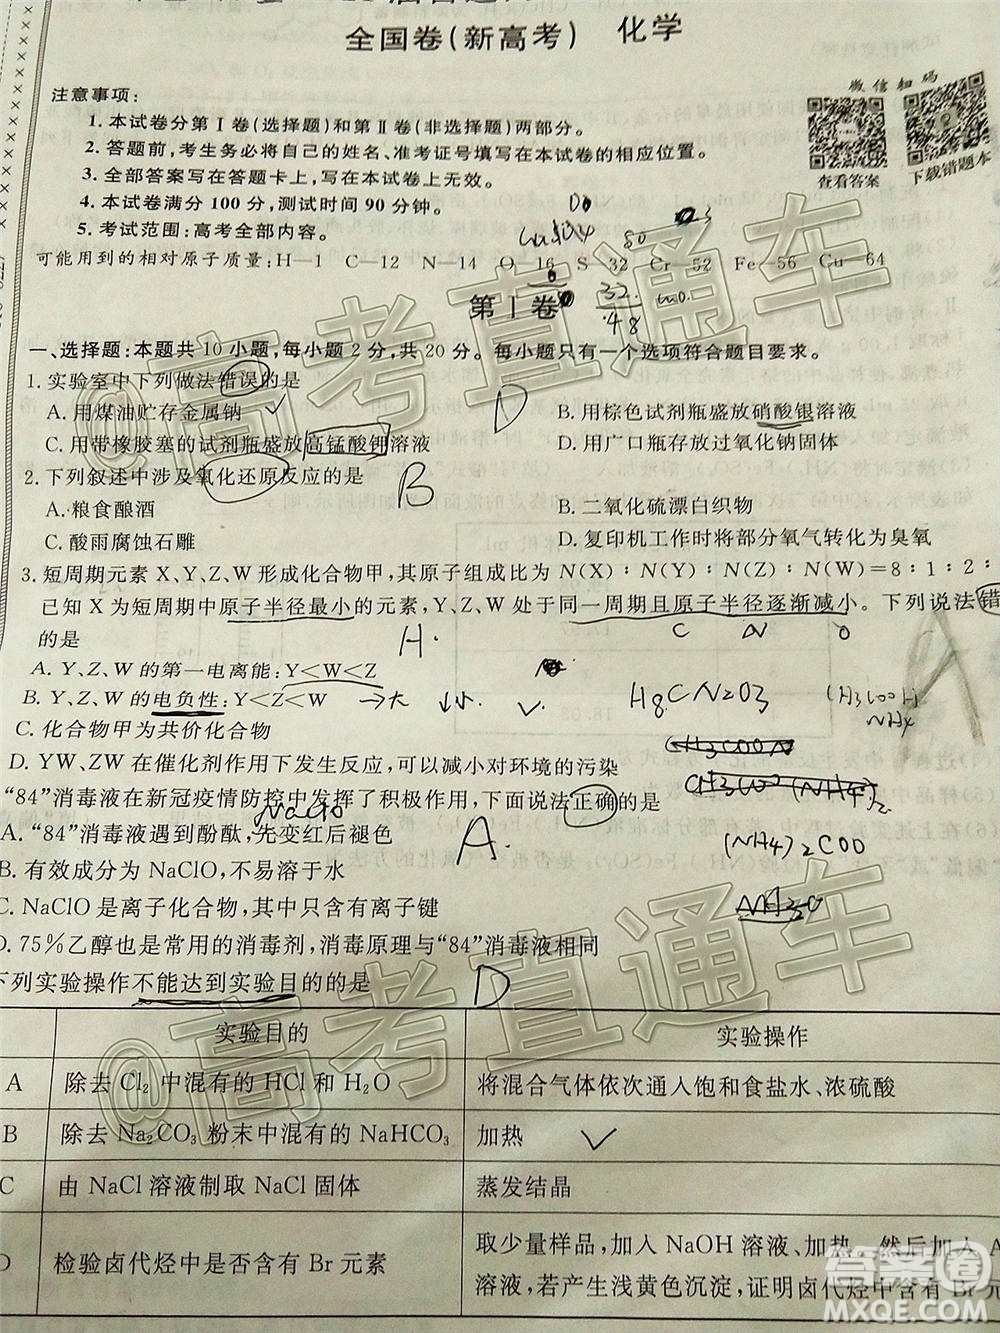 全国卷(新高考) 化学
微信扫码
查看答案
下载错题本
注意事项:
1.本试卷分第Ⅰ卷(选择题)和第Ⅱ卷(非选择题)两部分。
2.答题前,考生务必将自己的姓名、准考证号填写在本试卷的相应位置。
3.全部答案写在答题卡上,写在本试卷上无效。
4.本试卷满分100分,测试时间90分钟。
5.考试范围:高考全部内容。
可能用到的相对原子质量:H—1 C—12 N—14 O—16 S—32 Cr—52 Fe—56 Cu—64
80
32
48
第Ⅰ卷
一、选择题:本题共10小题,每小题2分,共20分。每小题只有一个选项符合题目要求。
1.实验室中下列做法错误的是 D
A.用煤油贮存金属钠 B.用棕色试剂瓶盛放硝酸银溶液
C.用带橡胶塞的试剂瓶盛放高锰酸钾溶液 D.用广口瓶存放过氧化钠固体
2.下列叙述中涉及氧化还原反应的是 B
A.粮食酿酒 B.二氧化硫漂白织物
C.酸雨腐蚀石雕 D.复印机工作时将部分氧气转化为臭氧
3.短周期元素X、Y、Z、W形成化合物甲,其原子组成比为N(X)∶N(Y)∶N(Z)∶N(W)=8∶1∶2∶
已知X为短周期中原子半径最小的元素,Y、Z、W处于同一周期且原子半径逐渐减小。下列说法错
的是 H C N O
A.Y、Z、W的第一电离能:Y<W<Z
B.Y、Z、W的电负性:Y<Z<W →大 小 H8CN2O3
C.化合物甲为共价化合物
D.YW、ZW在催化剂作用下发生反应,可以减小对环境的污染
“84”消毒液在新冠疫情防控中发挥了积极作用,下面说法正确的是
NaClO
A.“84”消毒液遇到酚酞,先变红后褪色 A (NH4)2COO
B.有效成分为NaClO,不易溶于水
C.NaClO是离子化合物,其中只含有离子键
D.75%乙醇也是常用的消毒剂,消毒原理与“84”消毒液相同
下列实验操作不能达到实验目的的是 D
实验目的 实验操作
A 除去Cl2中混有的HCl和H2O 将混合气体依次通入饱和食盐水、浓硫酸
B 除去Na2CO3粉末中混有的NaHCO3 加热
C 由NaCl溶液制取NaCl固体 蒸发结晶
D 检验卤代烃中是否含有Br元素 取少量样品,加入NaOH溶液、加热,然后加入A
溶液,若产生浅黄色沉淀,证明卤代烃中含有Br元
@高考直通车
@高考直通车
答案圈
MXQE.COM